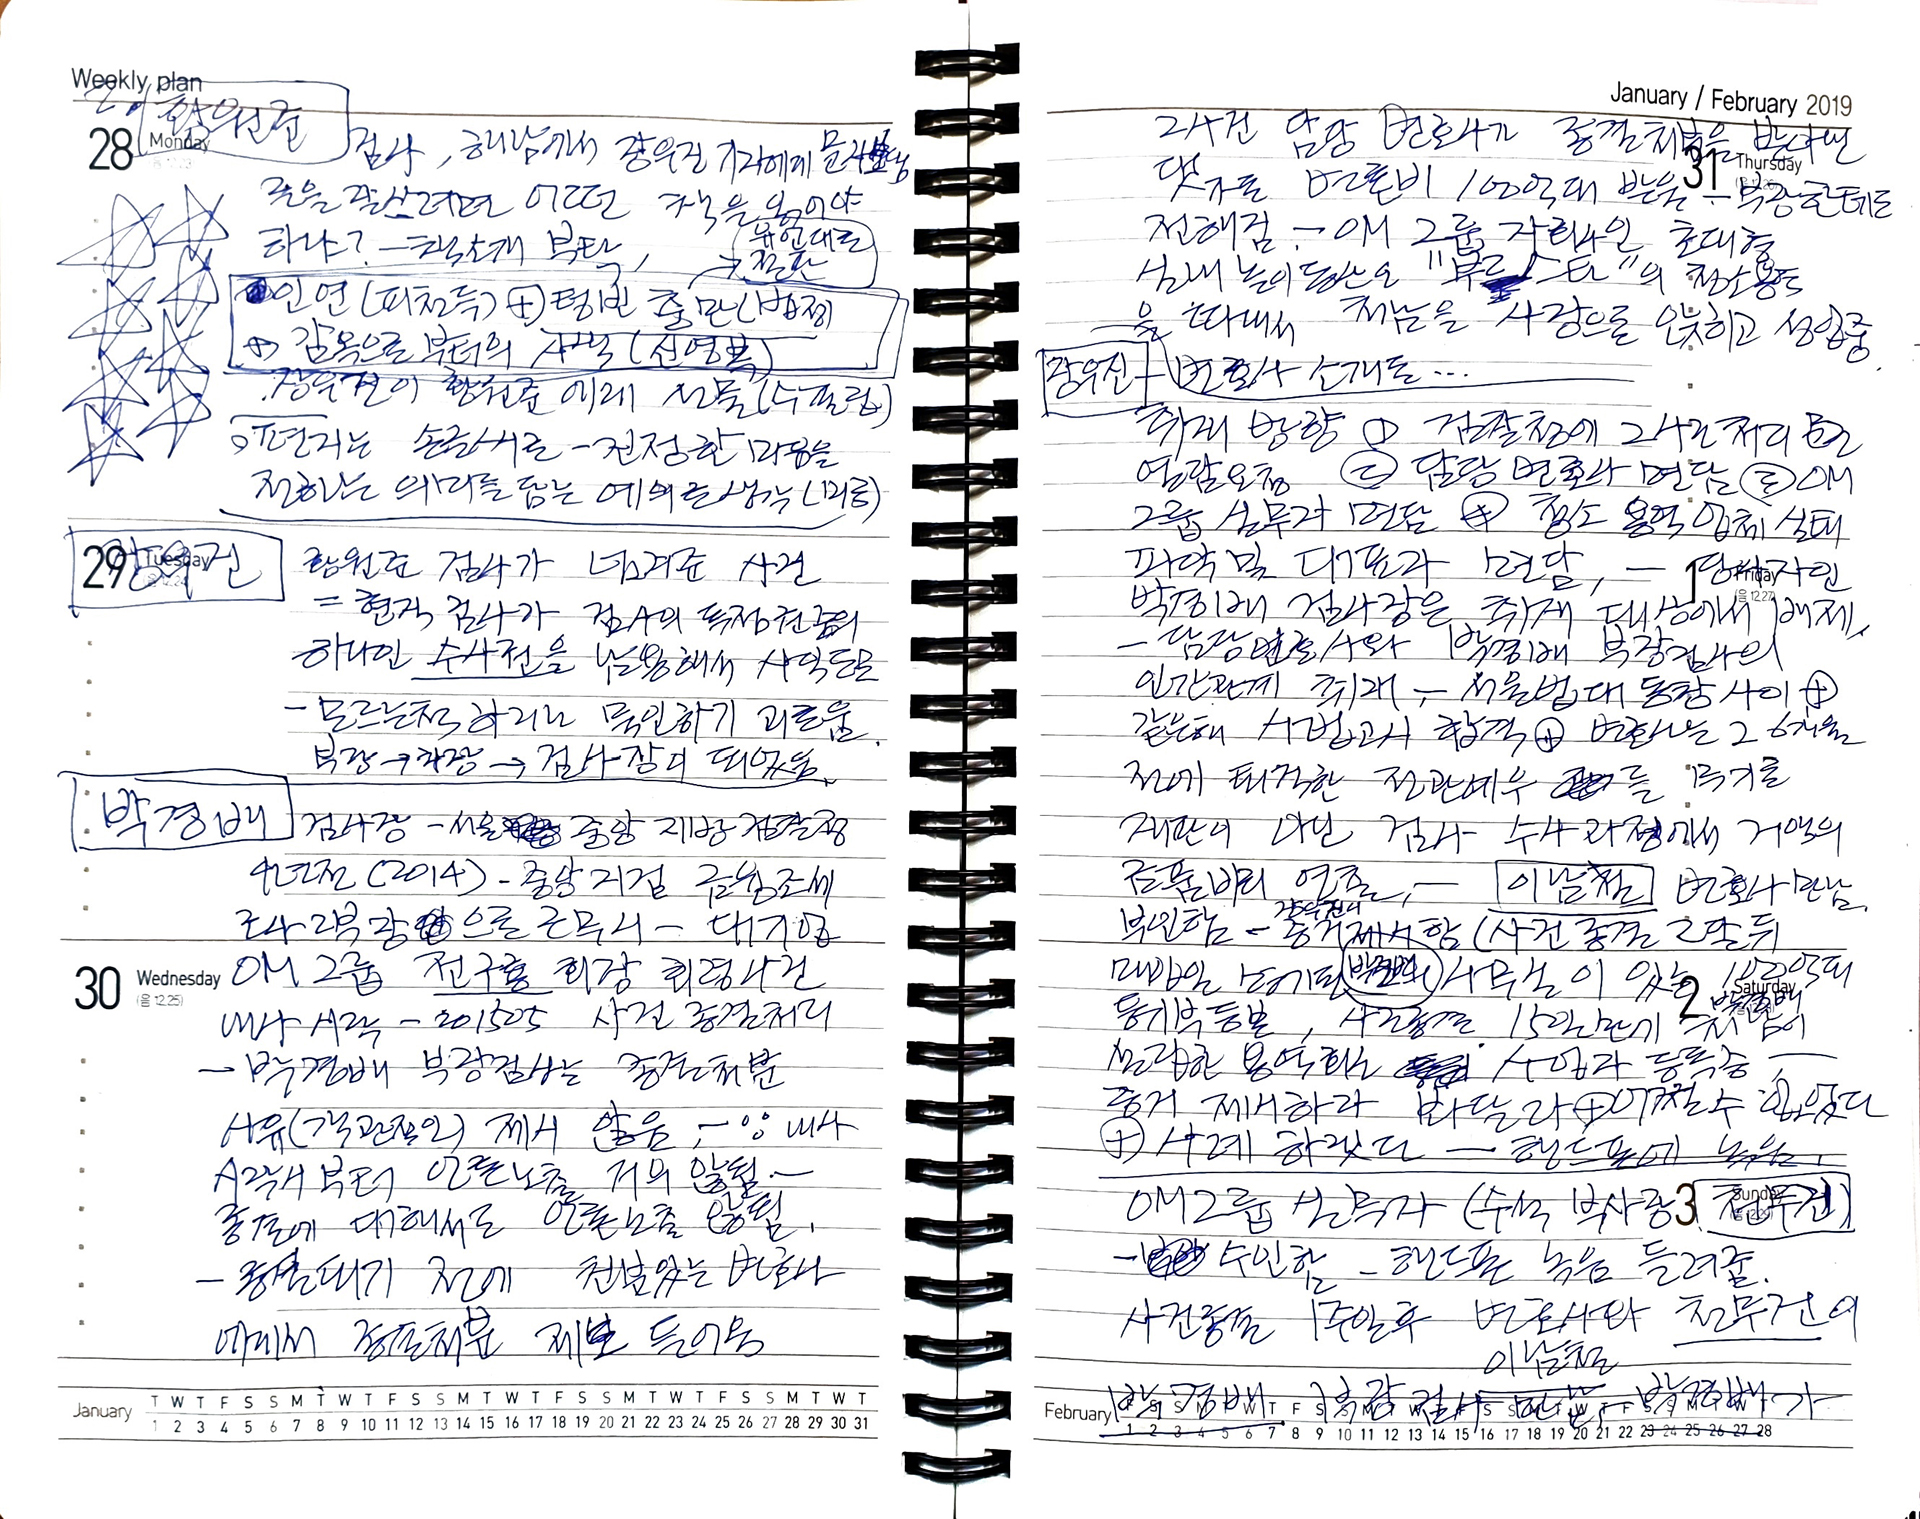 Weekly plan
28 Monday
황원준
검사, 해남에서 장우진 기자에게 문자보냄
글을 잘쓰려면 어떤 책을 읽어야
하나? - 책소개 부탁,
유언대로
→ 절판
인연 (피천득) ⊕ 텅빈 충만 (법정)
⊕ 감옥으로 부터의 사색 (신영복)
장우진이 황원준에게 선물 (수필집)
편지는 손글씨로 - 진정한 마음을
전하는 의미를 담는 예의로 생각
29 Tuesday
장우진
황원준 검사가 넘겨준 사건
= 현직 검사가 검사의 독점권한의
하나인 수사권을 남용해서 사익도모
- 모르는척 하려니 묵인하기 괴로움.
부장 → 차장 → 검사장이 되었음.
박경배
검사장 - 서울 중앙 지방 검찰청
4년전 (2014) - 중앙지검 금융조세
조사 2부장으로 근무시 - 대기업
30 Wednesday
(음 12.25)
OM그룹 회장 횡령사건
내사 시작 - 201505 사건 종결처리
- 박경배 부장검사는 종결처분
사유 (객관적인) 제시 않음, - 내사
시작서부터 언론노출 거의 않됨 -
종결에 대해서도 언론노출 않됨.
- 종결되기 전에 친분있는 변호사
에게서 종결처분 제보 들어옴
January
T W T F S S M T W T F S S M T W T F S S M T W T F S S M T W T
1 2 3 4 5 6 7 8 9 10 11 12 13 14 15 16 17 18 19 20 21 22 23 24 25 26 27 28 29 30 31
January / February 2019
그사건 담당 변호사가 종결처분을 받아낸
댓가로 변론비 100억대 받음 - 부장한테도
31 Thursday
전해짐 - OM 그룹 자회사인 초대형
실내 놀이동산 의 청소용역
을 따내서 처남을 사장으로 앉히고 성업중.
장우진 - 변호사 소개로 ...
취재 방향 ① 검찰청에 그사건처리 문건
열람요청 ② 담당 변호사 면담 ③ OM
그룹 실무자 면담 ⊕ 청소 용역 업체 실태
파악 및 대표과 면담, - 당사자인
1 Friday
(음 12.27)
박경배 검사장은 취재 대상에서 배제,
- 담당변호사와 박경배 부장검사의
인간관계 취재 - 서울법대 동창 사이 ⊕
같은해 사법고시 합격 ⊕ 변호사는 그 6개월
전에 퇴직한 전관예우를 무기로
재판이 아닌 검사 수사과정에서 거액의
금품비리 연줄, - 이남철 변호사 만남.
부인함 - 장우진이 증거제시함 (사건종결 2달 뒤
매입한 사무실이 있는 100억대
2 Saturday
박경배
등기부등본, 사건종결 15일만에 처남이
설립한 용역회사 사업자 등록증, -
증거 제시하라 봐달라 ⊕ 어쩔수 없었다
⊕ 사례 하겠다 - 핸드폰에 녹음.
3 Sunday
OM그룹 실무자 (수석 부사장 천무건)
- 수인함 - 핸드폰 녹음 들려줌.
사건종결 1주일후 변호사와 천무건이
이남철
박경배 부장검사 만남, - 박경배가
February
F S S M T W T F S S M T W T F S S M T W T F S S M T W T
1 2 3 4 5 6 7 8 9 10 11 12 13 14 15 16 17 18 19 20 21 22 23 24 25 26 27 28